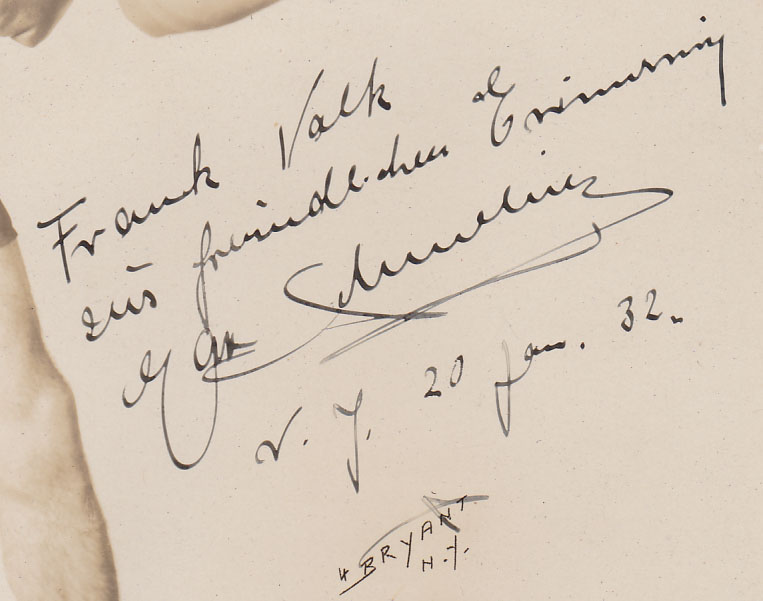 Frank Valk
zur freundlichen Erinnerung
Max Schmeling
N. Y. 20 Jan. 32.
H BRYANT
N.Y.